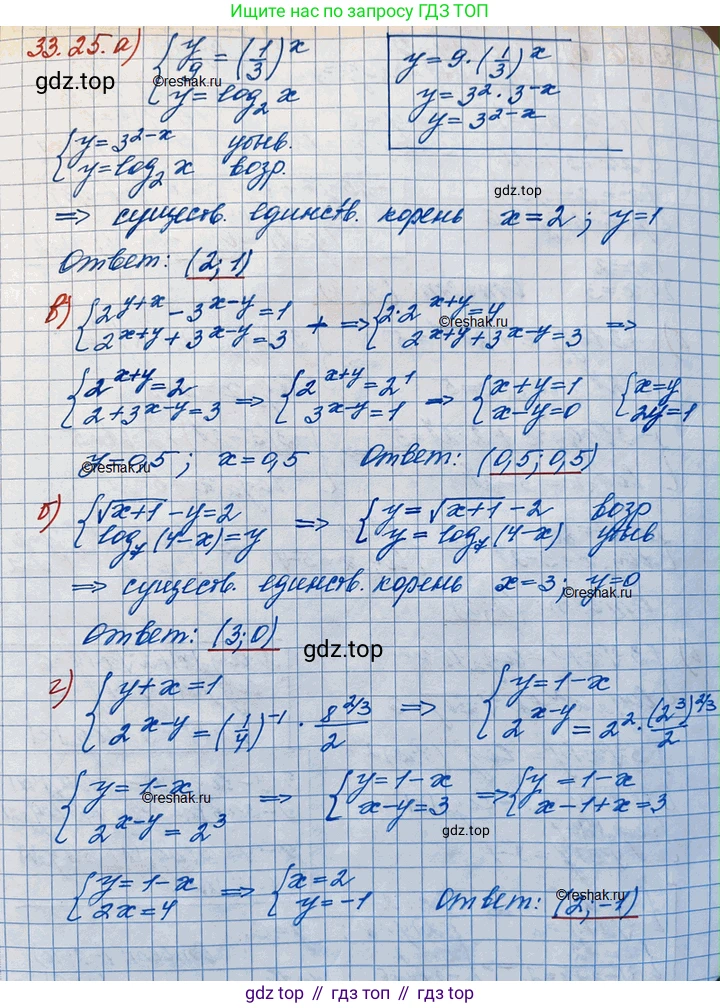 Ищите нас по запросу ГДЗ ТОП
33.25. а) { y/9 = (1/3)^x
y = log₂ x
y = 9 · (1/3)^x
y = 3² · 3^(-x)
y = 3^(2-x)
gdz.top
©reshak.ru
{ y = 3^(2-x) убыв.
y = log₂ x возр.
gdz.top
=> существ. единств. корень x = 2 ; y = 1
Ответ: (2; 1)
в) { 2^(y+x) - 3^(x-y) = 1
2^(x+y) + 3^(x-y) = 3 + => { 2·2^(x+y) = 4
2^(x+y) + 3^(x-y) = 3 =>
©reshak.ru
{ 2^(x+y) = 2
2 + 3^(x-y) = 3 => { 2^(x+y) = 2^1
3^(x-y) = 1 => { x+y = 1
x-y = 0 { x = y
2y = 1
y = 0,5 ; x = 0,5 Ответ: (0,5; 0,5)
©reshak.ru
б) { √(x+1) - y = 2
log₇ (4-x) = y => { y = √(x+1) - 2 возр
y = log₇ (4-x) убыв
=> существ. единств. корень x = 3; y = 0
©reshak.ru
Ответ: (3; 0)
gdz.top
г) { y + x = 1
2^(x-y) = (1/4)^(-1) · 8^(2/3)/2 => { y = 1-x
2^(x-y) = 2² · (2³)^(2/3)/2
{ y = 1-x
2^(x-y) = 2³ => { y = 1-x
x-y = 3 => { y = 1-x
x-1+x = 3
©reshak.ru
gdz.top
{ y = 1-x
2x = 4 => { x = 2
y = -1 Ответ: (2; -1)
©reshak.ru
gdz top // гдз топ // gdz.top